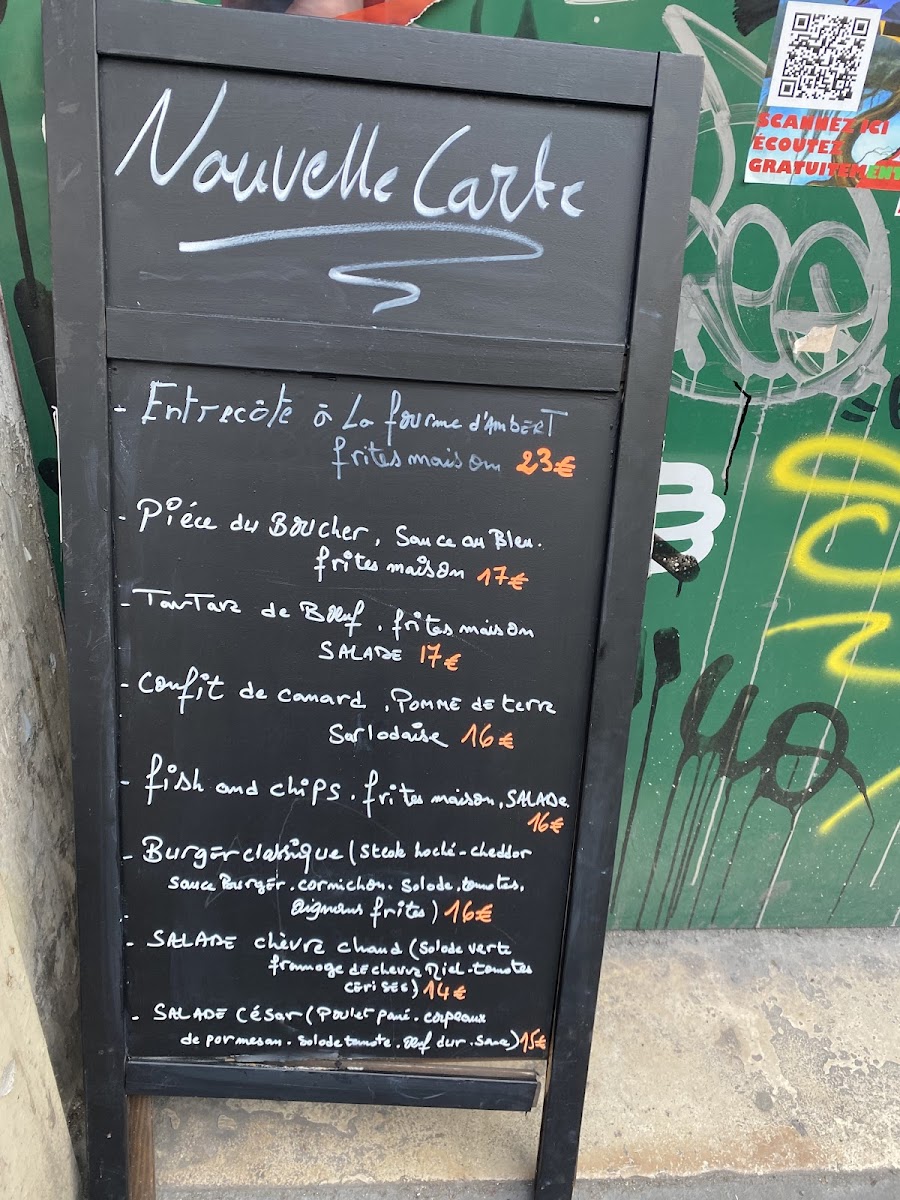 Nouvelle Carte
- Entrecôte à La fourme d'AmberT
frites maison 23€
- Piéce du Boucher, Sauce au Bleu.
frites maison 17€
- TarTare de Bœuf. frites maison
SALADE 17€
- Confit de canard, Pomme de terre
Sarladaise 16€
- fish and chips. frites maison, SALADE.
16€
- Burger classique (Steak haché-cheddar
sauce Burger. cornichon. Salade, tomates,
oignons frites) 16€
- SALADE chèvre chaud (Salade verte
fromage de chevre Miel-tomates
CERISES) 14€
- SALADE César (Poulet pané. copeaux
de parmesan. Salade tomate. Œuf dur. Sauce) 15€
SCANNEZ ICI
ÉCOUTEZ
GRATUITEMENT